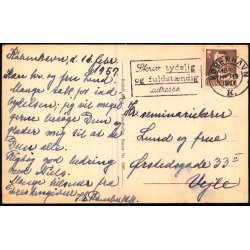 København, d. 16 febr.
1957.
Kære hr. og fru Lund.
Mange tak for ind-
bydelsen; jeg vil meget
gerne besøge Dem og
glæder mig til at se
Dem alle.
Rigtig god bedring
med Niels.
Mange hilsener fra
Skriv tydelig
og fuldstændig
adresse
KØBENHAVN
K.
Hr. seminarielærer
Lund og frue
Ørstedsgade 33
Vejle